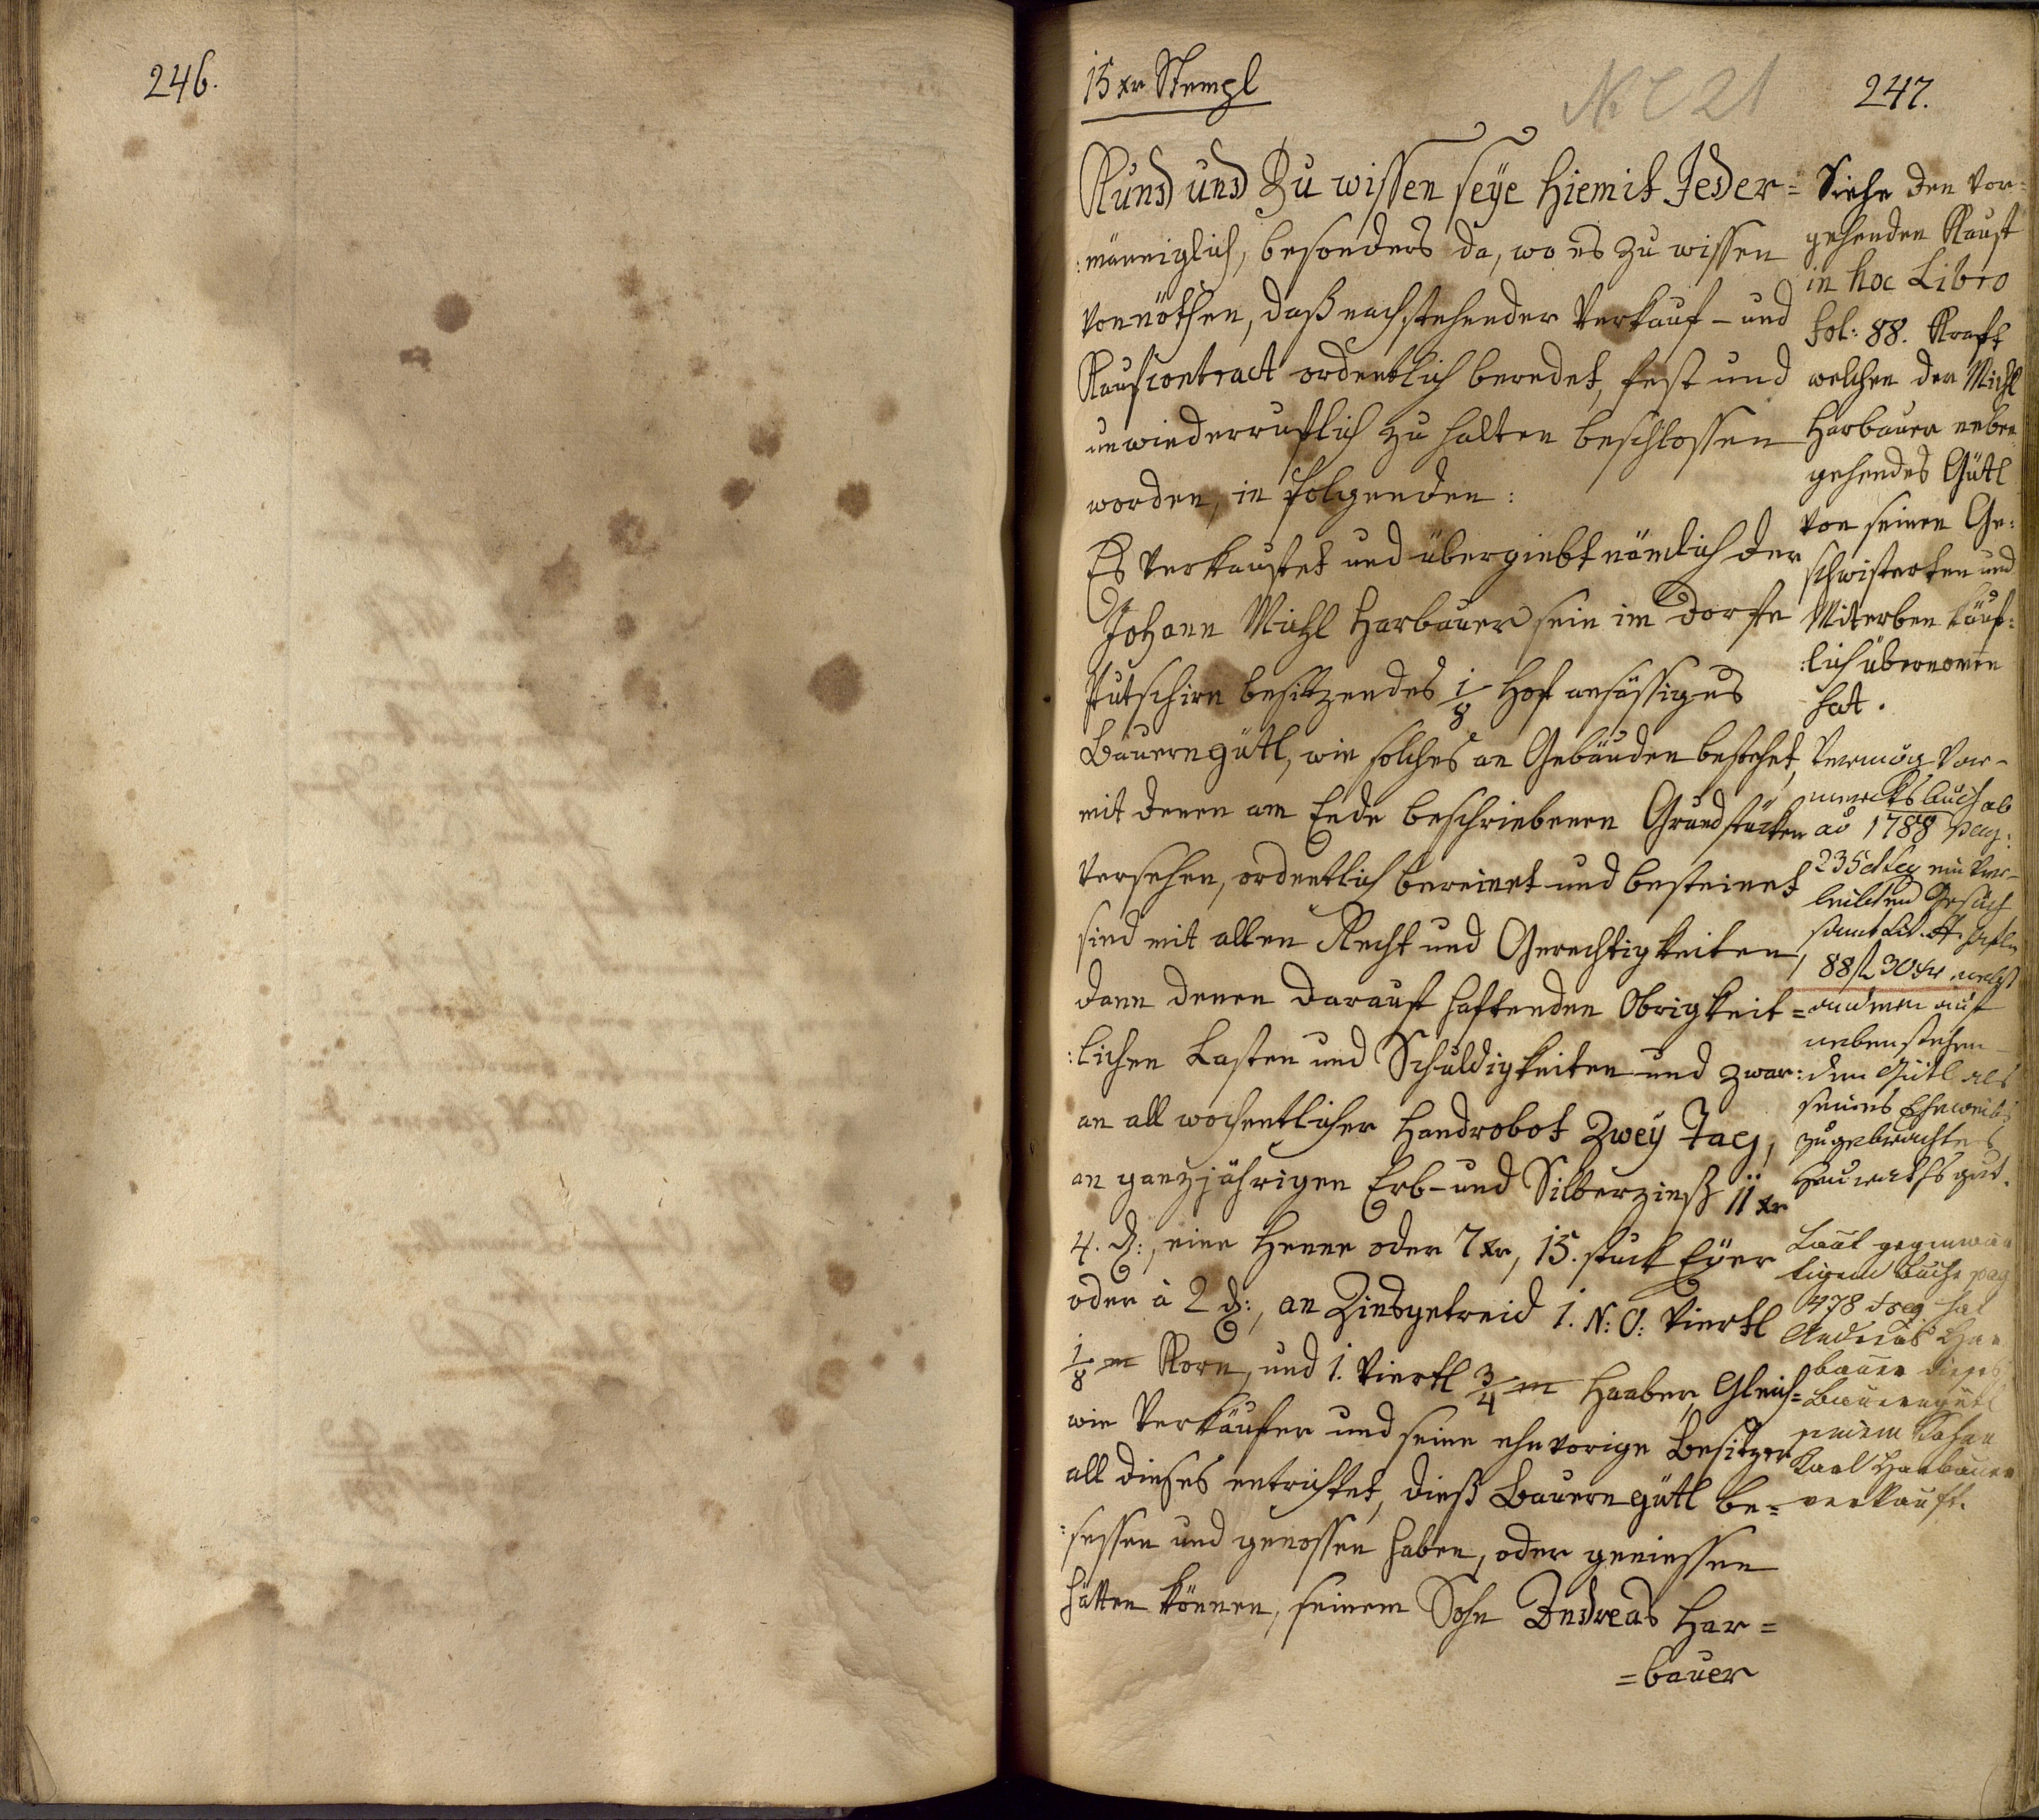 246.
15 xr Stempl
N C 21
247.
Kund und Zu wissen seÿe hiemit Jeder=
:männiglich, besonders da, wo es zu wissen
vonnöthen, daß nachstehender Verkauf- und
Kaufcontract ordentlich beredet, fest und
unwiederruflich zu halten beschlossen
worden, in folgenden:
Es verkauffet und übergiebt nämlich der
Johann Michl Harbauer sein im Dorfe
Putschirn besitzendes 1/8 Hof ansässiges
Bauerngütl, wie solches an Gebäuden bestehet,
mit denen am Ende beschriebenen Grundstücken
versehen, ordentlich bereinet und besteinet
sind mit allen Recht und Gerechtigkeiten,
dann denen darauf haftenden Obrigkeit=
:lichen Lasten und Schuldigkeiten und zwar:
an all wochentlicher Handrobot Zweÿ Tag,
an ganzjährigen Erb- und Silberzinß 11 xr
4. d:, eine Henne oder 7 xr, 15. stuck Eÿer
oder à 2 d:, an Zinsgetreid 1. N: Ö: Viertl
1/8 m Korn, und 1. Viertl 3/4 m Haaber, Gleich=
wie Verkäufer und seine ehevorige Besitzer
all dieses entrichtet, dieß Bauerngütl be=
:sessen und genossen haben, oder geniessen
hätten können, seinem Sohn Andreas Har=
=bauer
Siehe den vor=
gehenden Kauf
in hoc Libro
fol: 88. Kraft
welchen der Michl
Harbauer neben
gehendes Gütl
von seinen Ge=
schwisterten und
Miterben käuf=
:lich übernomen
hat.
Vermög Vor-
mercksbuch ab
ao 1788 pag:
235 et seq ein ver-
leibten Gesuch
samt Lit. A.
88 f 30 xr nebst
anderen auf
nebenstehen-
den Gütl als
seines Eheweibs
zugebrachtes
Heurathsgut.
Laut gegenwär
tigem Buche pag
478 et seq hat
Andreas Har
bauer dieses
Bauerngütl
seinem Sohne
Karl Harbauer
verkauft.